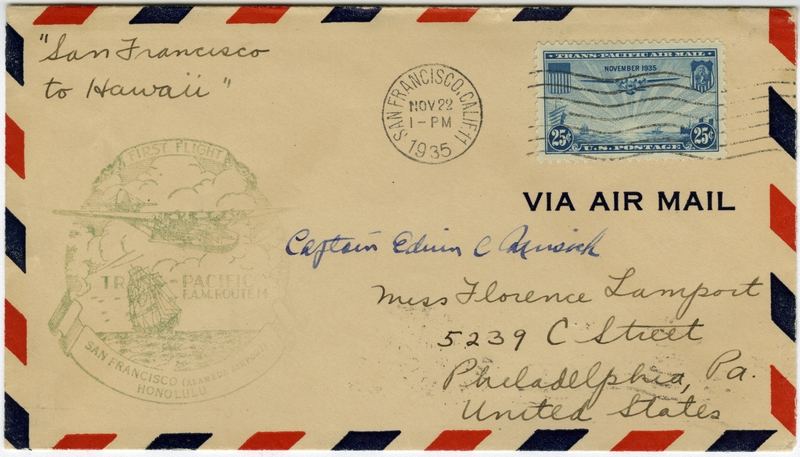 "San Francisco
to Hawaii"
SAN FRANCISCO, CALIF. 11
NOV 22
1-PM
1935
TRANS-PACIFIC AIR MAIL
NOVEMBER 1935
25¢ 25¢
U.S. POSTAGE
VIA AIR MAIL
FIRST FLIGHT
PACIFIC
F.A.M. ROUTE 14
SAN FRANCISCO
HONOLULU
Captain Edwin C Musick
Miss Florence Lamport
5239 C Street
Philadelphia, Pa.
United States